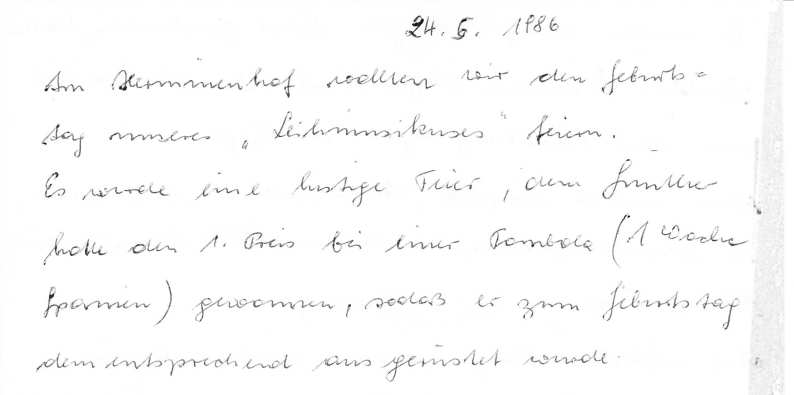 24. 5. 1986
Am Herminenhof wollten wir den Geburts-
tag unseres „Leihmusikuses" feiern.
Es wurde eine lustige Feier, denn Günther
hatte den 1. Preis bei einer Tombola (1 Woche
Spanien) gewonnen, sodaß er zum Geburtstag
dementsprechend ausgerüstet wurde.